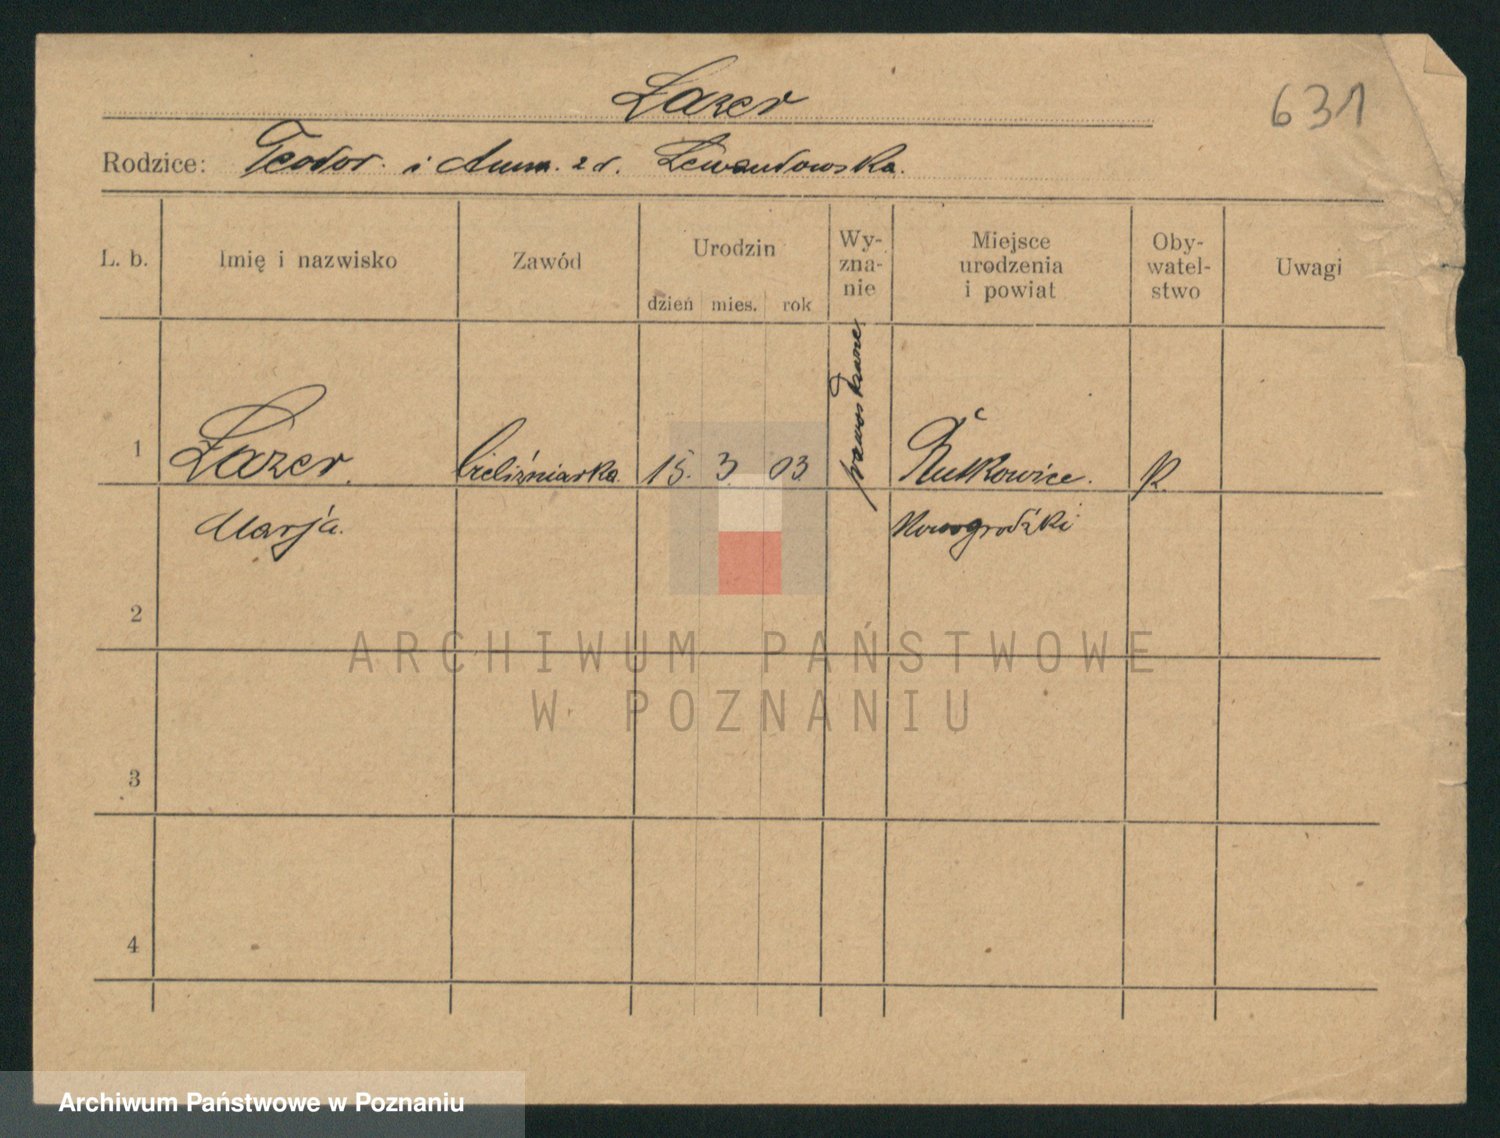 Łazer
631
Rodzice: Teodor i Anna z d. Lewandowska.
L. b. Imię i nazwisko Zawód Urodzin dzień mies. rok Wy-zna-nie Miejsce urodzenia i powiat Oby-watel-stwo Uwagi
1 Łazer bieliźniarka 15. 3 03 prawosławne P.
Marja. Nowogródzki
2
3
4
ARCHIWUM PAŃSTWOWE
W POZNANIU
Archiwum Państwowe w Poznaniu